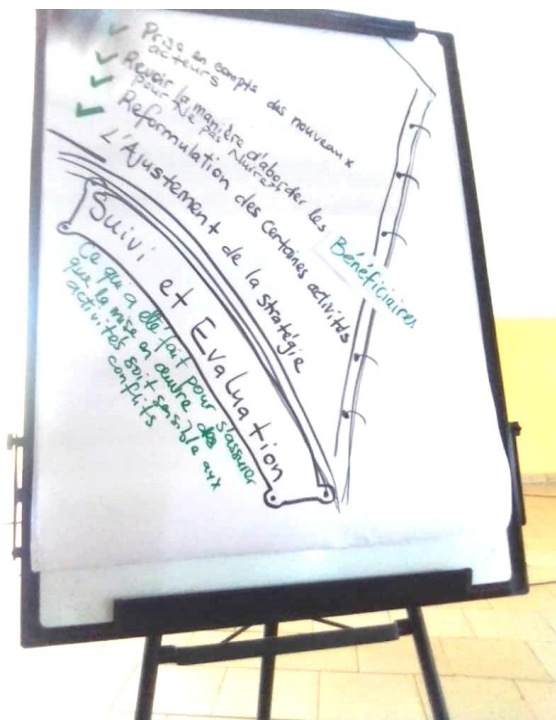 Prise en compte des nouveaux
acteurs
Revoir la manière d'aborder les Bénéficiaires
pour Ne pas Nuires
Reformulation des Certaines activités
L'Ajustement de la stratégie
Suivi et Evaluation
Ce qui a été fait pour s'assurer
que la mise en œuvre des
activités soit sensible aux
conflits